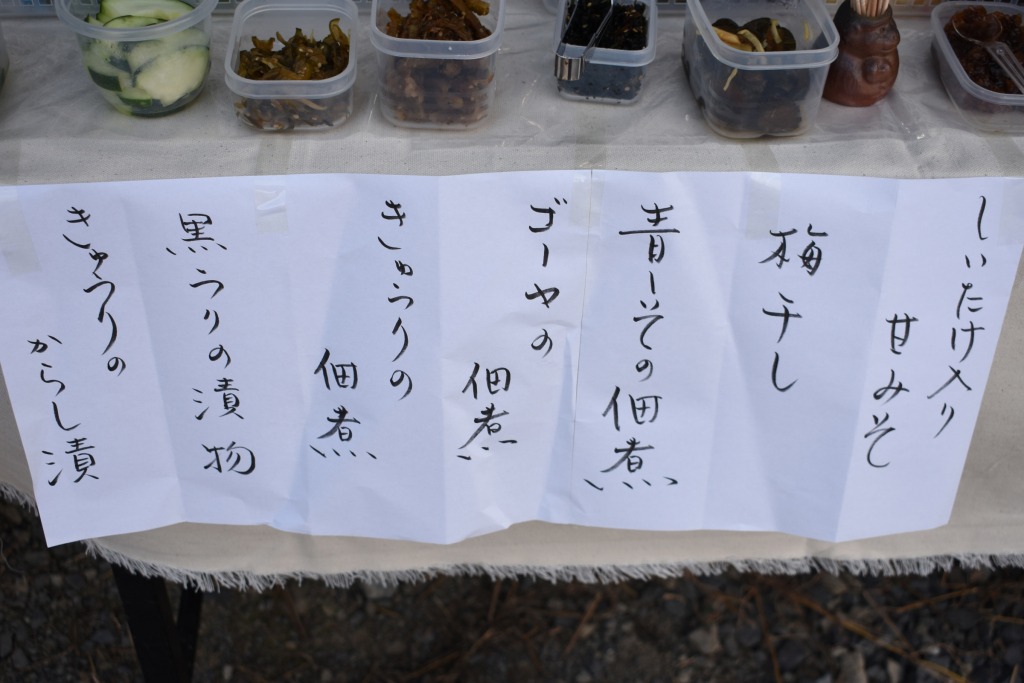 しいたけ入り
甘みそ
梅干し
青しその佃煮
ゴーヤの
佃煮
きゅうりの
佃煮
黒うりの漬物
きゅうりの
からし漬